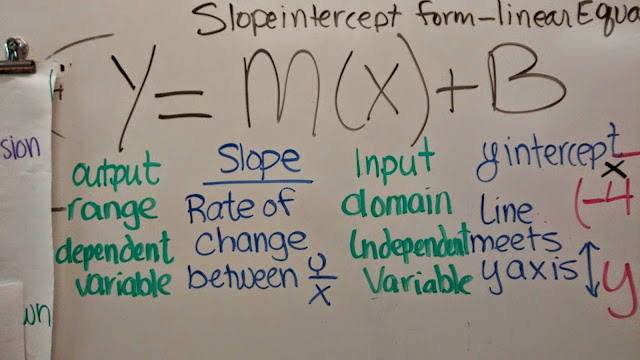 Slopeintercept form-linear Equa
Y = M(X) + B
sion
output
range
dependent
variable
Slope
Rate of
change
between y/x
Input
domain
Independent
Variable
y intercept
line
meets
y axis
x
(-4
y
wn